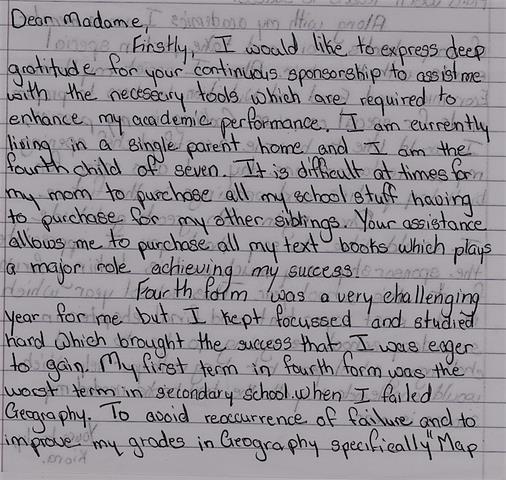 Dear Madame,
Firstly, I would like to express deep
gratitude for your continuous sponsorship to assist me
with the necessary tools which are required to
enhance my academic performance. I am currently
living in a single parent home and I am the
fourth child of seven. It is difficult at times for
my mom to purchase all my school stuff having
to purchase for my other siblings. Your assistance
allows me to purchase all my text books which plays
a major role achieving my success.
Fourth form was a very challenging
year for me but I kept focussed and studied
hard which brought the success that I was eager
to gain. My first term in fourth form was the
worst term in secondary school. when I failed
Geography. To avoid reoccurrence of failure and to
improve my grades in Geography specifically "Map